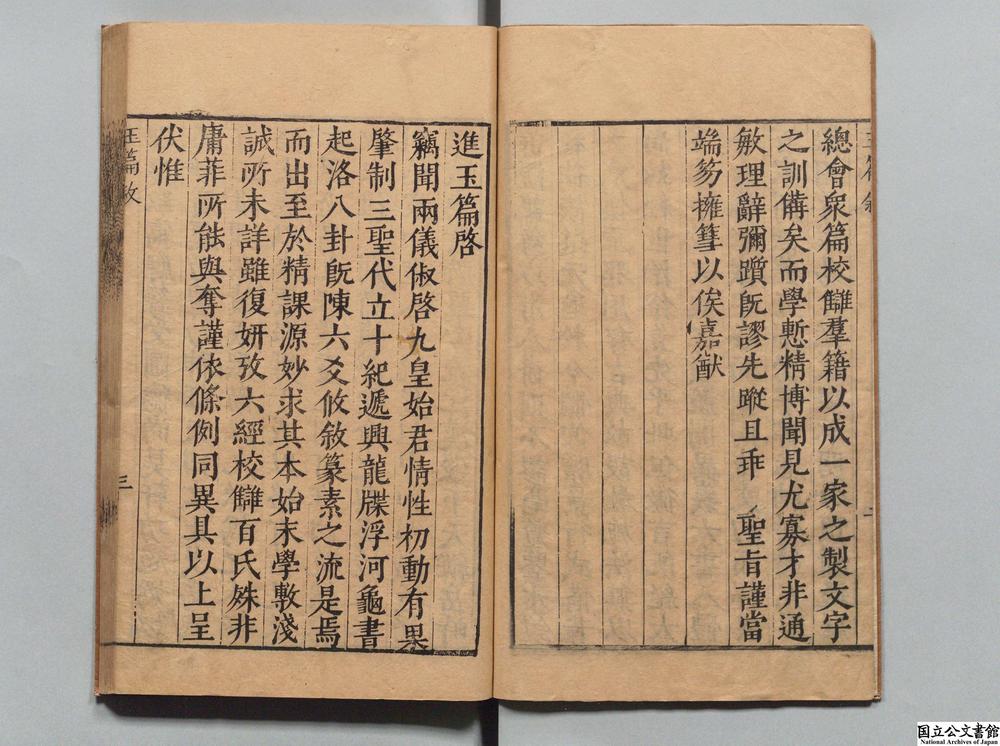 總會衆篇校讎羣籍以成一家之製文字
之訓備矣而學慙精博聞見尤寡才非通
敏理辭彌躓旣謬先蹤且乖　聖旨謹當
端笏擁篲以俟嘉猷
進玉篇啓
竊聞兩儀俶啓九皇始君情性初動有㬎
肇制三聖代立十紀遞興龍牒浮河龜書
起洛八卦旣陳六爻攸敘篆素之流是焉
而出至於精課源妙求其本始末學敷淺
誠所未詳雖復妍攷六經校讎百氏殊非
庸菲所能與奪謹依條例同異具以上呈
伏惟
三
国立公文書館
National Archives of Japan